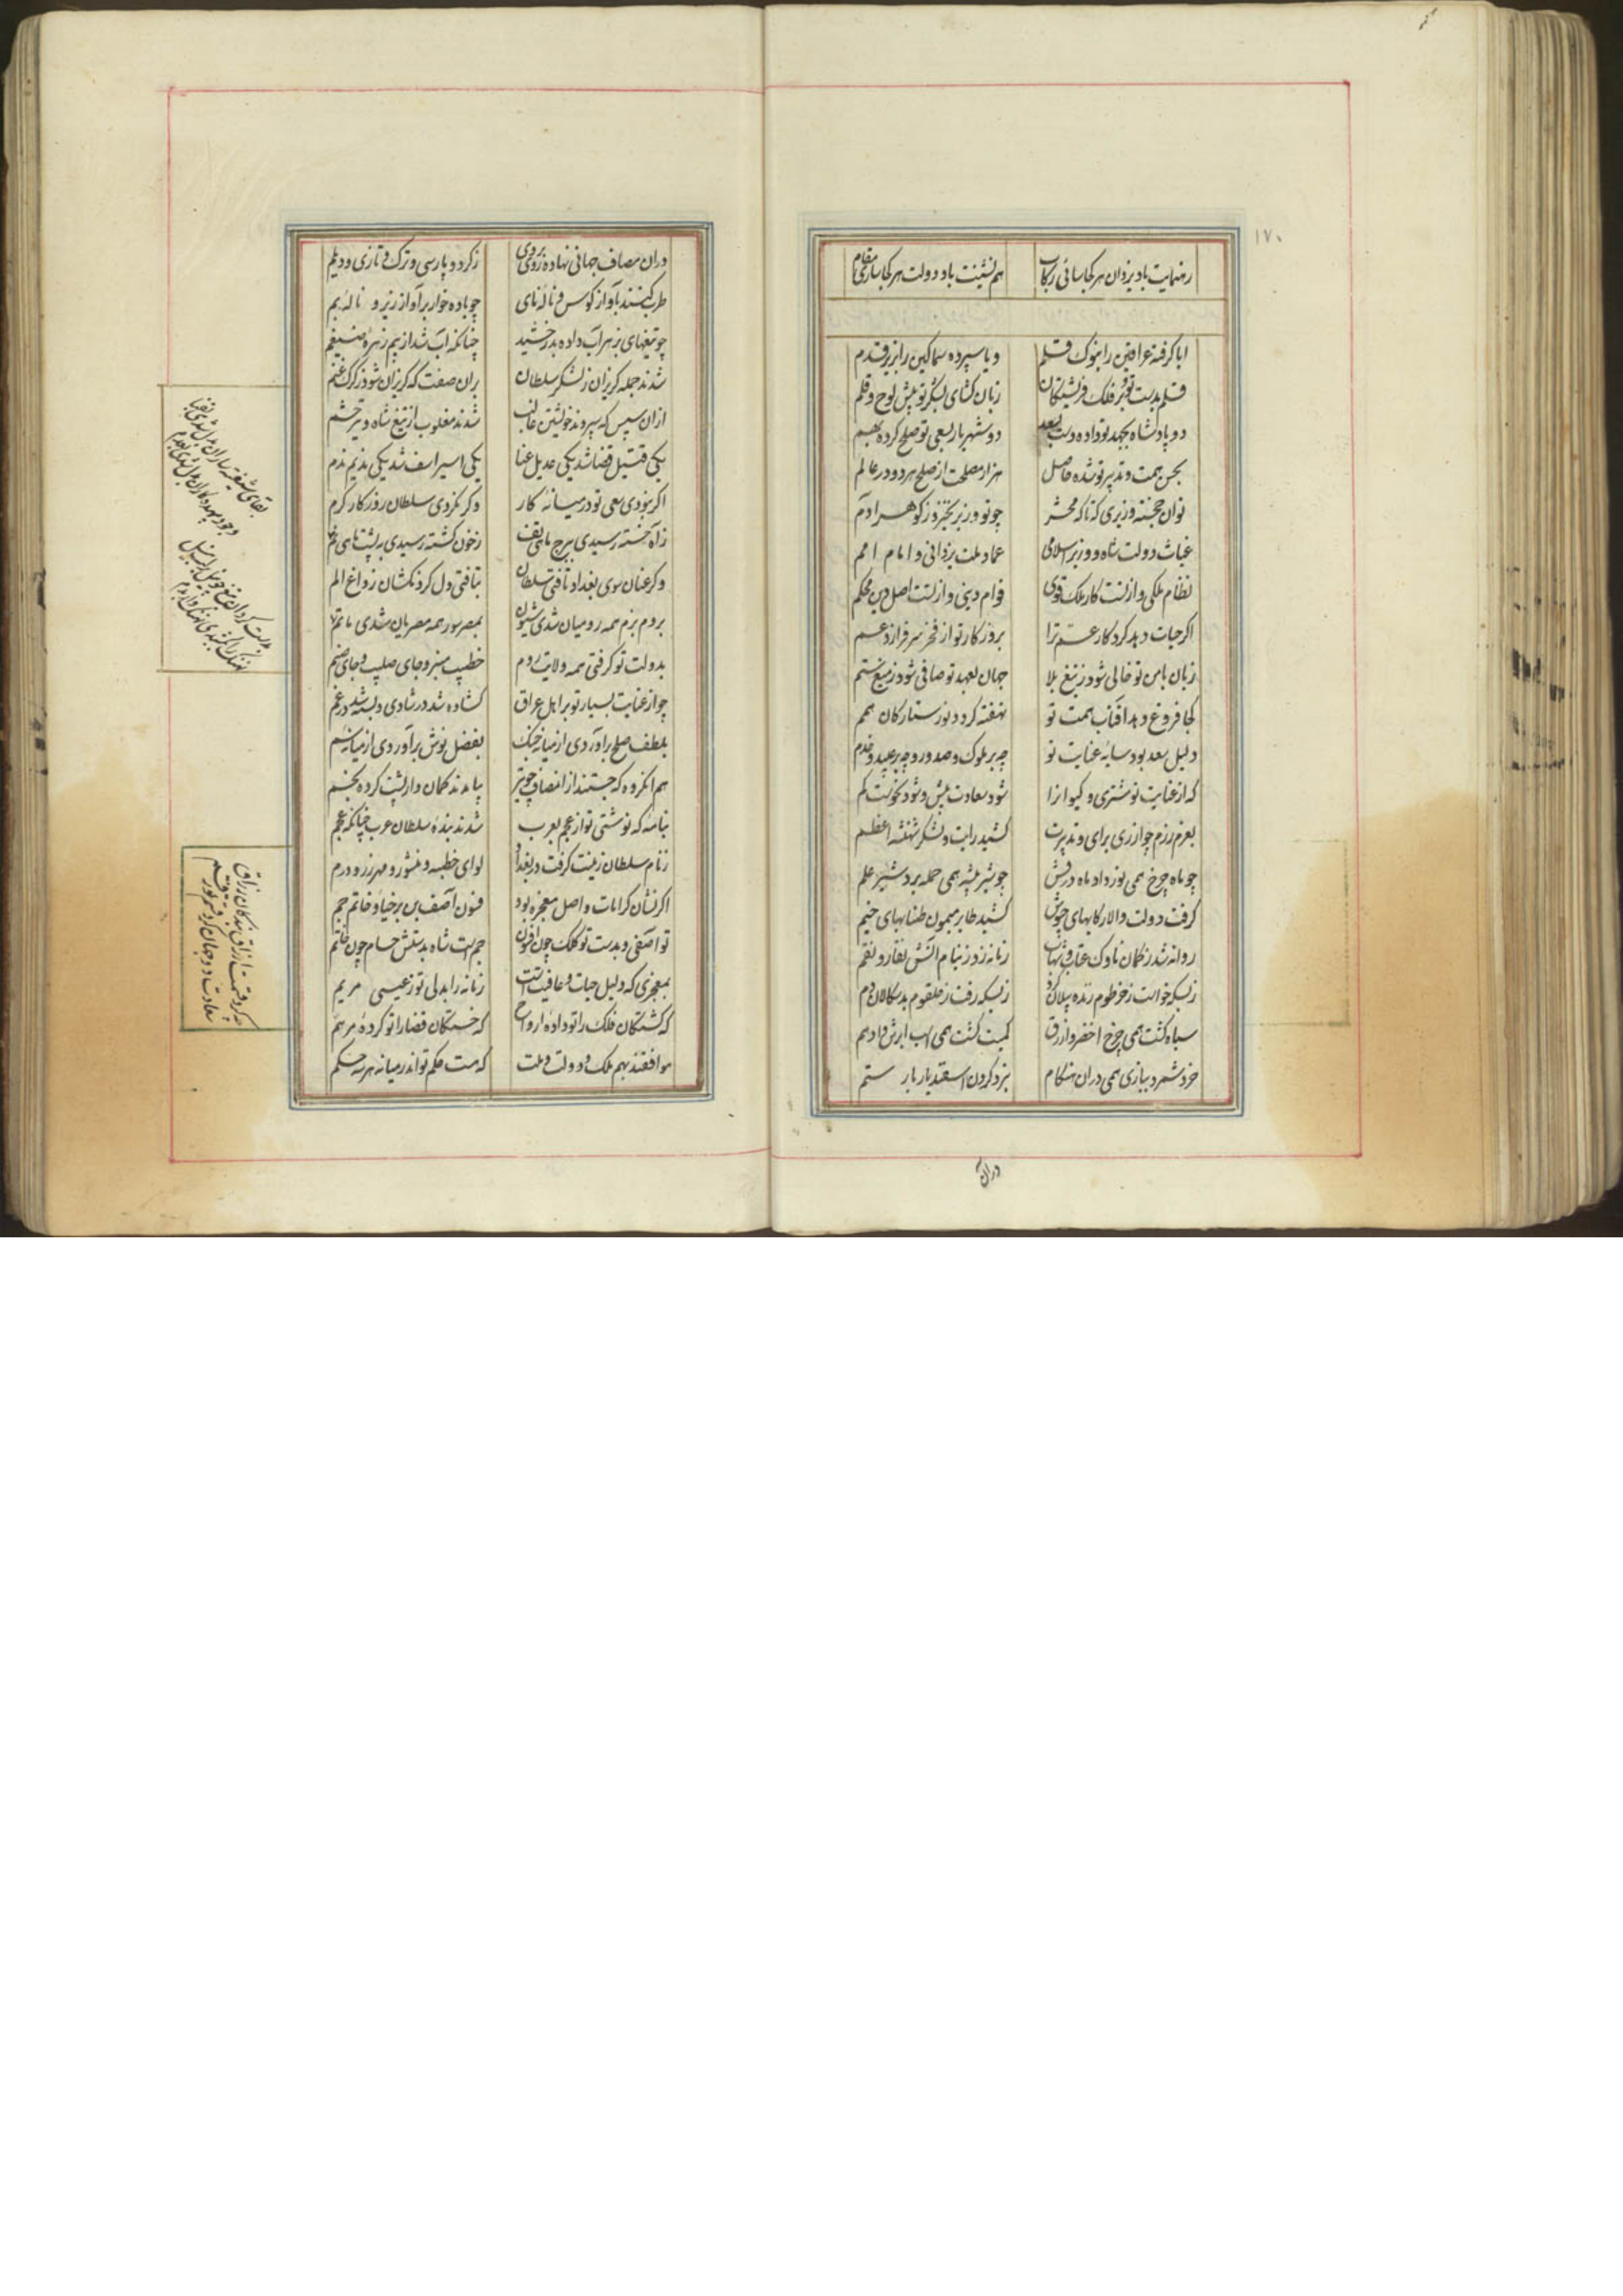 ۱۷۰
رهنمایت باد یزدان هر کجا سائی رکاب همنشینت باد دولت هر کجا سازی مقام
ایا گرفته عراقین را بنوک قلم و یا سپرده سماکین را بزیر قدم
قلم بدست تو و بر فلک فریشتکان زبان کشای بشکر تو پیش لوح و قلم
دو پادشاه بجهد تو داده دست بعهد دو شهریار بسعی تو صلح کرده بهم
بحسن همت و تدبیر تو شده حاصل هزار مصلحت از صلح هر دو در عالم
توان خجسته وزیری که تا که محشر چو تو وزیر نخیزد ز کوهر آدم
غیاث دولت شاه و وزیر اسلامی عماد ملت یزدانی و امام امم
نظام ملکی و از تست کار ملک قوی قوام دینی و از تست اصل دین محکم
اکر حیات دهد کردکار عم ترا بروزکار تو از فخر سرفرازد عم
زبان بامن تو خالی شود ز تیغ بلا جهان بعهد تو صافی شود ز تیغ ستم
کجا فروغ دهد آفتاب همت تو نهفته کردد نور ستارکان همم
دلیل سعد بود سایه عنایت تو چه بر ملوک و صدور و چه بر عبید و خدم
که از عنایت تو مشتری و کیوانرا شود سعادت بیش و شود نحوست کم
بعزم رزم چو از ری برای و تدبیرت کشید رایت و لشکر شهنشه اعظم
چو ماه چرخ همی نور داد ماه درفش چو شیر بیشه همی حمله برد شیر علم
کرفت دولت والا رکابهای خوش کشید طایر میمون طنابهای خیم
روانه شد ز کمان ناوک عقاب و شهاب زبانه زد ز نیام آتش نقار و نقم
ز بسکه خواست ز خرطوم زنده پیلان دود ز بسکه رفت ز حلقوم بدسکالان دم
سیاه کشت همی چرخ اخضر و ازرق کمیت کشت همی اسب ابرش و ادهم
خرد شمرد ببازی همی دران هنکام نبرد کردن اسفندیار با رستم
دران
دران مصاف جهانی نهاده روی بروی ز کرد و پارسی و ترک و تازی و دیلم
طرب کنند بآواز کوس و ناله نای چو باده خوار بر آواز زیر و ناله بم
چو تیغهای بزهر آب داده بدرخشید چنانکه آب شد از بیم زهره ضیغم
شدند جمله کریزان ز لشکر سلطان بران صفت که کریزان شود ز کرک غنم
ازان سپس که سپردند خویشتن غالب شدند مغلوب از تیغ شاه و تیر حشم
یکی قتیل قضا شد یکی عدیل عنا یکی اسیر اسف شد یکی ندیم ندم
اکر نبودی سعی تو در میانه کار وکر نکردی سلطان روزکار کرم
ز آه خسته رسیدی ببرج ماهی تف ز خون کشته رسیدی به پشت ماهی نم
وکر عنان سوی بغداد تافتی سلطان بتافتی دل کردنکشان ز داغ الم
بروم بزم همه رومیان شدی شیون بمصر سور همه مصریان شدی ماتم
بدولت تو کرفتی همه ولایت روم خطیب منبر و جای صلیب و جای صنم
چو از عنایت بسیار تو بر اهل عراق کشاده شد در شادی و بسته شد در غم
بلطف صلح برآوردی از میانه جنک بفضل نوش برآوردی از میانه سم
هم آن کروه که جستند از انصاف چو تیر بیامدند کمان وار پشت کرده بخم
بنامه که نوشتی تو از عجم بعرب شدند بنده سلطان عرب چنانکه عجم
ز نام سلطان زینت کرفت در بغداد لوای خطبه و منشور و مهر زر و درم
اکر نشان کرامات و اصل معجزه بود فسون آصف بن برخیا و خاتم جم
تو آصفی و بدست تو کلک چون افسون جم است شاه بدستش حسام چون خاتم
بمعجزی که دلیل حیات و عافیت است زمانه را بدلی تو ز عیسی مریم
که کشتکان فلک را تو داده ارواح که خستکان قضا را تو کرده مرهم
موافقند بهم ملک و دولت و ملت که هست حکم تو اندر میانه هر سه حکم